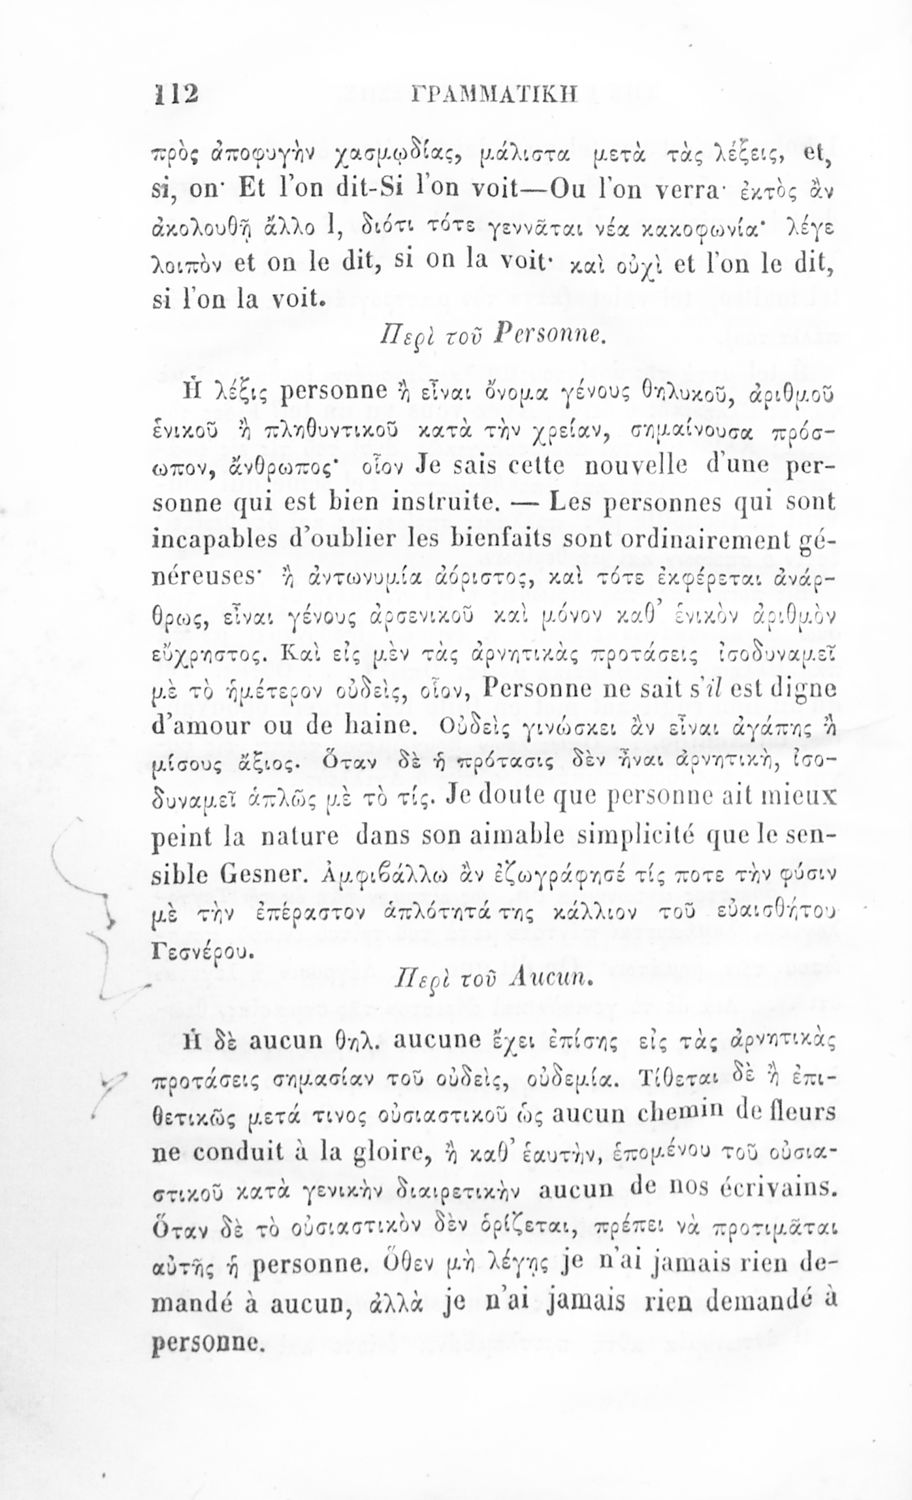 112 ΓΡΑΜΜΑΤΙΚΗ
πρὸς ἀποφυγὴν χασμῳδίας, μάλιστα μετὰ τὰς λέξεις, et,
si, on· Et l'on dit-Si l'on voit—Ou l'on verra· ἐκτὸς ἂν
ἀκολουθῇ ἄλλο l, διότι τότε γεννᾶται νέα κακοφωνία· λέγε
λοιπὸν et on le dit, si on la voit· καὶ οὐχὶ et l'on le dit,
si l'on la voit.
Περὶ τοῦ Personne.
Ἡ λέξις personne ἢ εἶναι ὄνομα γένους θηλυκοῦ, ἀριθμοῦ
ἑνικοῦ ἢ πληθυντικοῦ κατὰ τὴν χρείαν, σημαίνουσα πρόσ-
ωπον, ἄνθρωπος· οἷον Je sais cette nouvelle d'une per-
sonne qui est bien instruite. — Les personnes qui sont
incapables d'oublier les bienfaits sont ordinairement gé-
néreuses· ἢ ἀντωνυμία ἀόριστος, καὶ τότε ἐκφέρεται ἀνάρ-
θρως, εἶναι γένους ἀρσενικοῦ καὶ μόνον καθ' ἑνικὸν ἀριθμὸν
εὔχρηστος. Καὶ εἰς μὲν τὰς ἀρνητικὰς προτάσεις ἰσοδυναμεῖ
μὲ τὸ ἡμέτερον οὐδεὶς, οἷον, Personne ne sait s'il est digne
d'amour ou de haine. Οὐδεὶς γινώσκει ἂν εἶναι ἀγάπης ἢ
μίσους ἄξιος. Ὅταν δὲ ἡ πρότασις δὲν ἦναι ἀρνητικὴ, ἰσο-
δυναμεῖ ἁπλῶς μὲ τὸ τίς. Je doute que personne ait mieux
peint la nature dans son aimable simplicité que le sen-
sible Gesner. Ἀμφιβάλλω ἂν ἐζωγράφησέ τίς ποτε τὴν φύσιν
μὲ τὴν ἐπέραστον ἁπλότητά της κάλλιον τοῦ εὐαισθήτου
Γεσνέρου.
Περὶ τοῦ Aucun.
Ἡ δὲ aucun θηλ. aucune ἔχει ἐπίσης εἰς τὰς ἀρνητικὰς
προτάσεις σημασίαν τοῦ οὐδεὶς, οὐδεμία. Τίθεται δὲ ἢ ἐπι-
θετικῶς μετά τινος οὐσιαστικοῦ ὡς aucun chemin de fleurs
ne conduit à la gloire, ἢ καθ' ἑαυτὴν, ἑπομένου τοῦ οὐσια-
στικοῦ κατὰ γενικὴν διαιρετικὴν aucun de nos écrivains.
Ὅταν δὲ τὸ οὐσιαστικὸν δὲν ὁρίζεται, πρέπει νὰ προτιμᾶται
αὐτῆς ἡ personne. Ὅθεν μὴ λέγῃς je n'ai jamais rien de-
mandé à aucun, ἀλλὰ je n'ai jamais rien demandé à
personne.